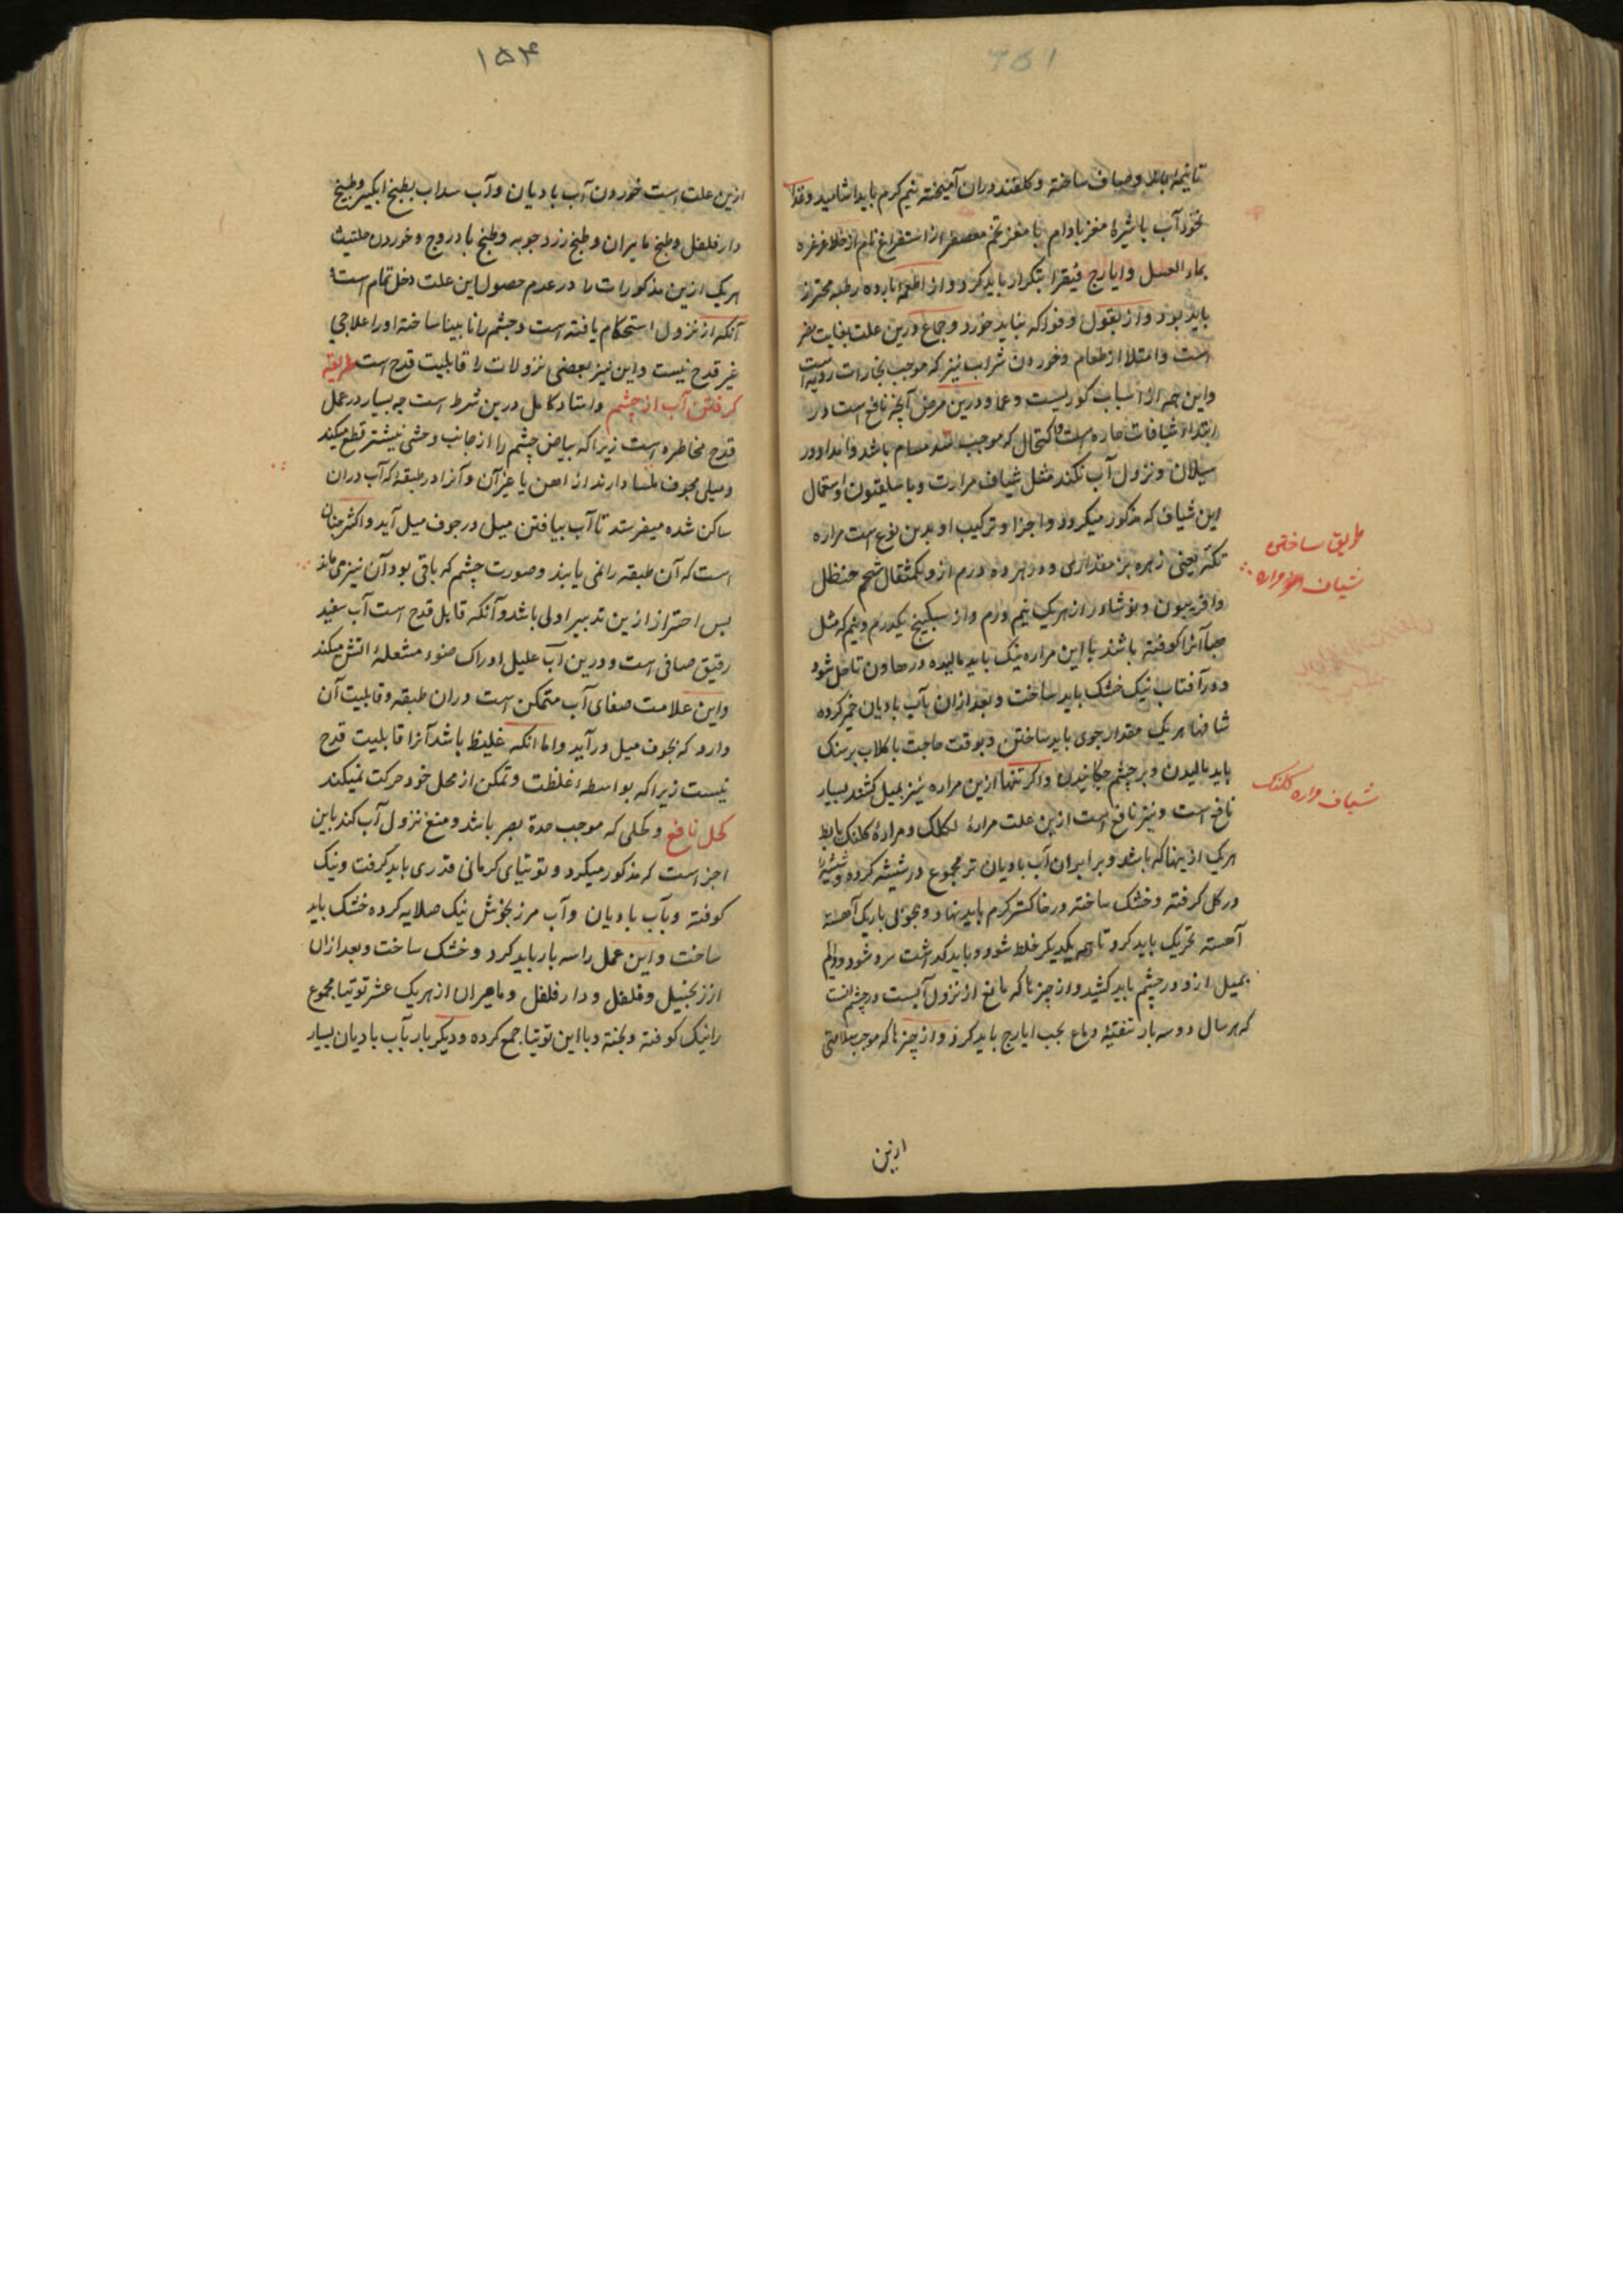 تا نیمه باید و صاف ساخته و گلقند دران آمیخته نیم کرم باید اشامید و غذا
نخود آب با شیرهٔ مغز بادام یا مغز تخم معصفر از استفراغ تام از خلط غرغره
بماء العسل و ایارج فیقرا بتکرار باید کرد و از اطعمه بارده رطبه محترز
باید بود و از بقول و فواکه نباید خورد و جماع درین علت بغایت مضر
است و امتلا از طعام و خوردن شراب نیز که موجب بخارات ردیه است
و این همه از اسباب کوریست و عما و درین مرض آنچه نافع است در
ابتدا شیافات حاره است و اکتحال که موجب سد مسام باشد و امداد در
سیلان و نزول آب نکند مثل شیاف مرارت و باسلیقون و استعمال
این شیاف که مذکور میکردد و اجزا و ترکیب او بدین نوع است مراره
تکه یعنی زهره بز مقداری و در هر ده درم ازو یکمثقال شحم حنظل
و افربیون و نوشادر از هریک نیم درم و از سکبینج یکدرم و نیم که مثل
هبا آنرا کوفته باشند با این مراره نیک باید مالیده در هاون تا حل شود
و در آفتاب نیک خشک باید ساخت و بعد ازان بآب بادیان خمیر کرده
شافها هریک مقدار جوی باید ساختن و بوقت حاجت با کلاب بر سنک
باید مالیدن و بر چشم چکانیدن و اکر تنها ازین مراره نیز بمیل کشند بسیار
نافع است و نیز نافع است ازین علت مرارهٔ لکلک و مرارهٔ کلنک باید
هریک ازینها که باشد و برابر ان آب بادیان تر مجموع در شیشه کرده و شیشه را
در کل کرفته و خشک ساخته در خاکستر کرم باید نهاد و بچوبی باریک آهسته
آهسته تحریک باید کرد تا بهم یکدیکر خلط شود و باید کذاشت سرد شود و دایم
بمیل ازو در چشم باید کشید و از چیزها که مانع از نزول آبست در چشم انست
که هر سال دو سه بار تنقیهٔ دماغ بحب ایارج باید کرد و از چیزها که موجب سلامتی
ازین
طریق ساختن
شیاف مراره
شیاف مراره کلنک
۱۵۴
ازین علت است خوردن آب بادیان و آب سداب بطبخ انجیر و طبخ
دار فلفل و طبخ مامیران و طبخ زرد چوبه و طبخ بادروج و خوردن حلتیت
هریک ازین مذکورات را در عدم حصول این علت دخل تمام است و
آنکه از نزول استحکام یافته است و چشم را نابینا ساخته او را علاجی
غیر قدح نیست و این نیز بعضی نزولات را قابلیت قدح است طریقه
کرفتن آب از چشم و استاد کامل درین شرط است چه بسیار در عمل
قدح مخاطره است زیرا که بیاض چشم را از جانب وحشی نیشتر قطع میکند
و میلی مجوف ملسا دارند از آهن یا غیر آن و آنرا در طبقهٔ که آب دران
ساکن شده میفرستد تا آب بیافتن میل در جوف میل آید و اکثر چنان
است که آن طبقه را نمی یابند و صورت چشم که باقی بود آن نیز می ماند
بس احتراز ازین تدبیر اولی باشد و آنکه قابل قدح است آب سفید
رقیق صافی است و درین آب علیل ادراک ضوء مشعلهٔ اتش میکند
و این علامت صفای آب متمکن است دران طبقه و قابلیت آن
دارد که بجوف میل درآید و اما انکه غلیظ باشد آنرا قابلیت قدح
نیست زیرا که بواسطهٔ غلظت و تمکن از محل خود حرکت نمیکند
کحل نافع و کحلی که موجب حدة بصر باشد و منع نزول آب کند باین
اجز است که مذکور میکرد و توتیای کرمانی قدری باید کرفت و نیک
کوفته و بآب بادیان و آب مرزنجوش نیک صلایه کرده خشک باید
ساخت و این عمل را سه بار باید کرد و خشک ساخت و بعد ازان
از زنجبیل و فلفل و دار فلفل و مامیران از هریک عشر توتیا مجموع
را نیک کوفته و بیخته و با این توتیا جمع کرده و دیکر بار بآب بادیان بسیار